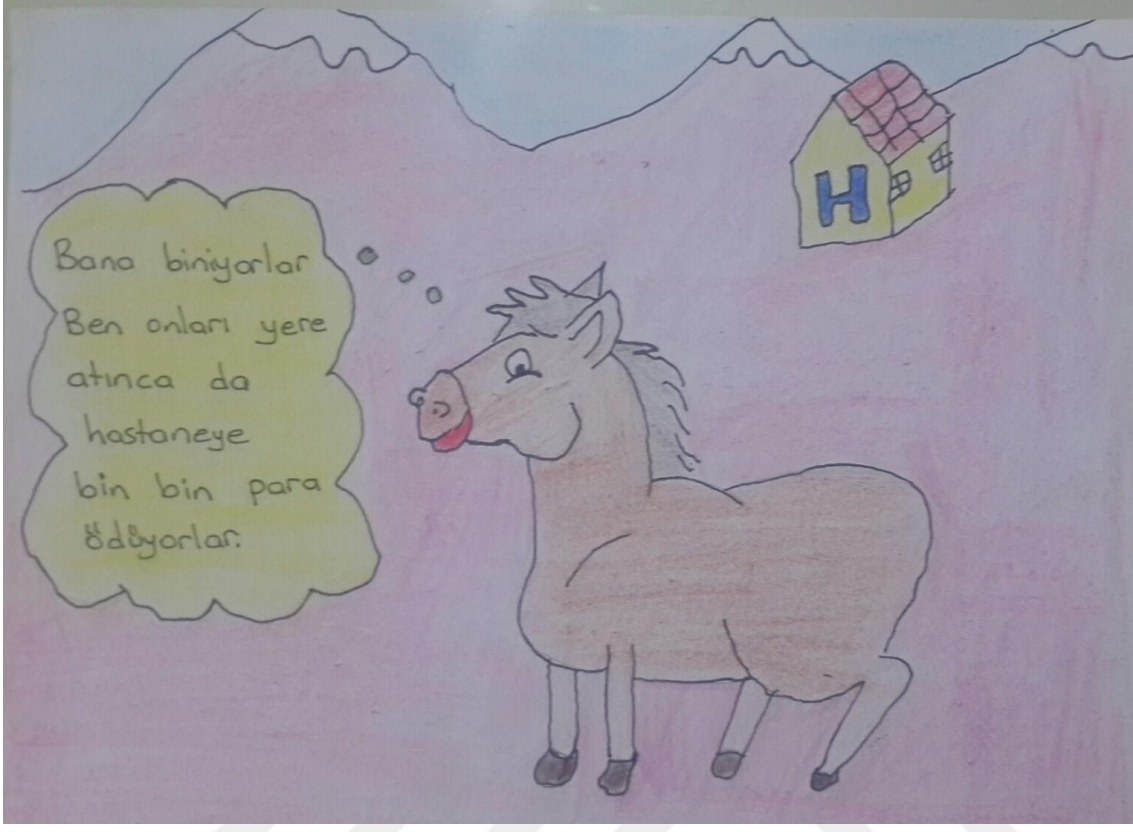 Bana biniyorlar
Ben onları yere
atınca da
hastaneye
bin bin para
ödüyorlar.
H